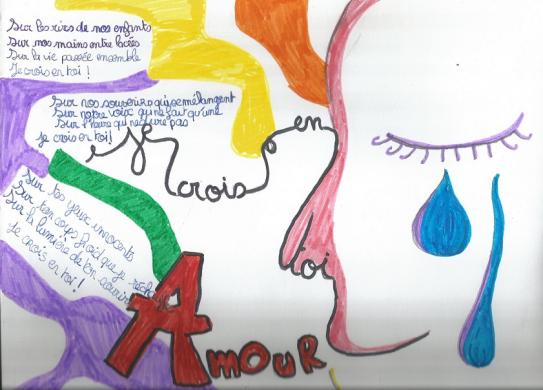 Sur les rirs de nos enfants
Sur nos mains entre lacées
Sur la vie passée ensemble
Je crois en toi !
Sur nos souvenirs qui se mélangent
Sur notre voix qui ne fait qu'une
Sur l'heure qui ne dure pas
je crois en toi!
Sur tes yeux innocents
Sur ton corps froid que je réch
Sur la lumière de ton sourire
Je crois en toi!
je
crois
en
toi
AMOUR